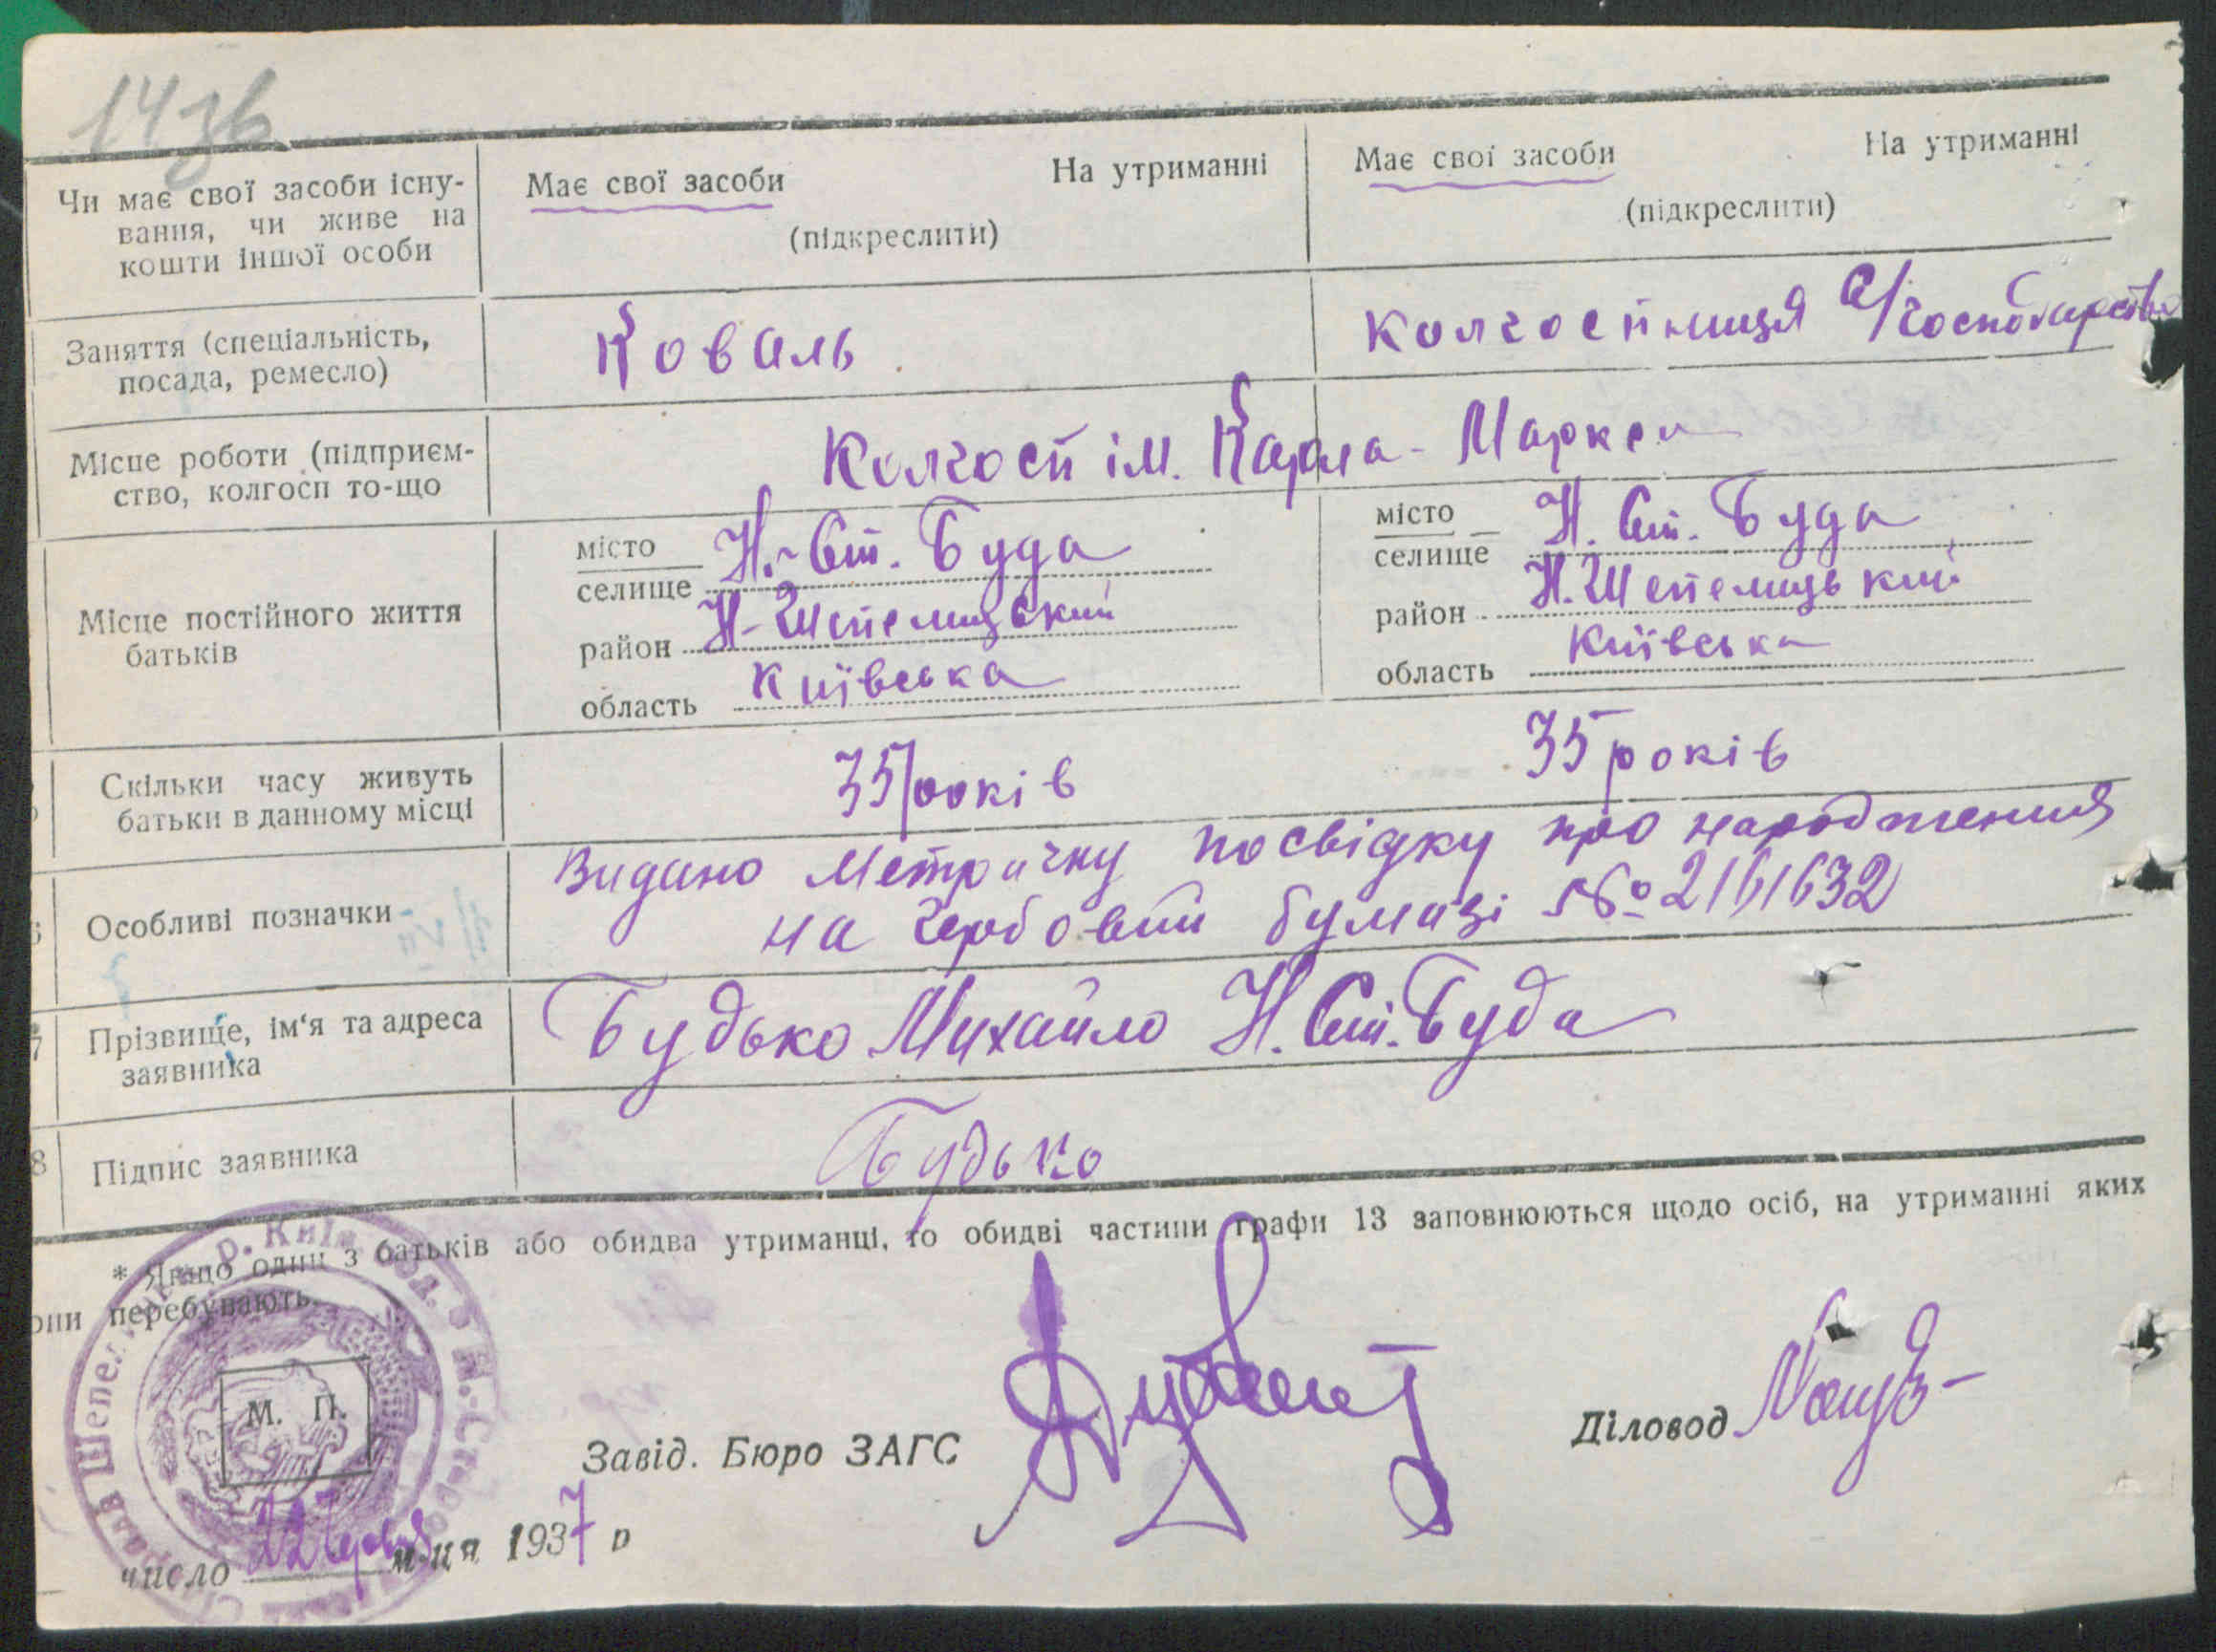 14зв
Чи має свої засоби існу-
вання, чи живе на
кошти іншої особи
Має свої засоби На утриманні
(підкреслити)
Має свої засоби На утриманні
(підкреслити)
Заняття (спеціальність,
посада, ремесло)
Коваль
колгоспниця с/господарства
Місце роботи (підприєм-
ство, колгосп то-що
Колгосп ім. Карла-Маркса
Місце постійного життя
батьків
місто
селище Н.-Ст. Буда
район Н-Шепелицький
область Київська
місто
селище Н. Ст. Буда
район Н.Шепелицький
область Київська
Скільки часу живуть
батьки в данному місці
35 років
35 років
Особливі позначки
Видано метричну посвідку про народження
на гербовій бумазі № 2161632
7 Прізвище, ім'я та адреса
заявника
Будько Михайло Н. Ст. Буда
8 Підпис заявника
Будько
* Якщо один з батьків або обидва утриманці, то обидві частини графи 13 заповнюються щодо осіб, на утриманні яких
они перебувають.
М. П.
Завід. Бюро ЗАГС
Діловод
число 22 Червня м-ця 1937 р